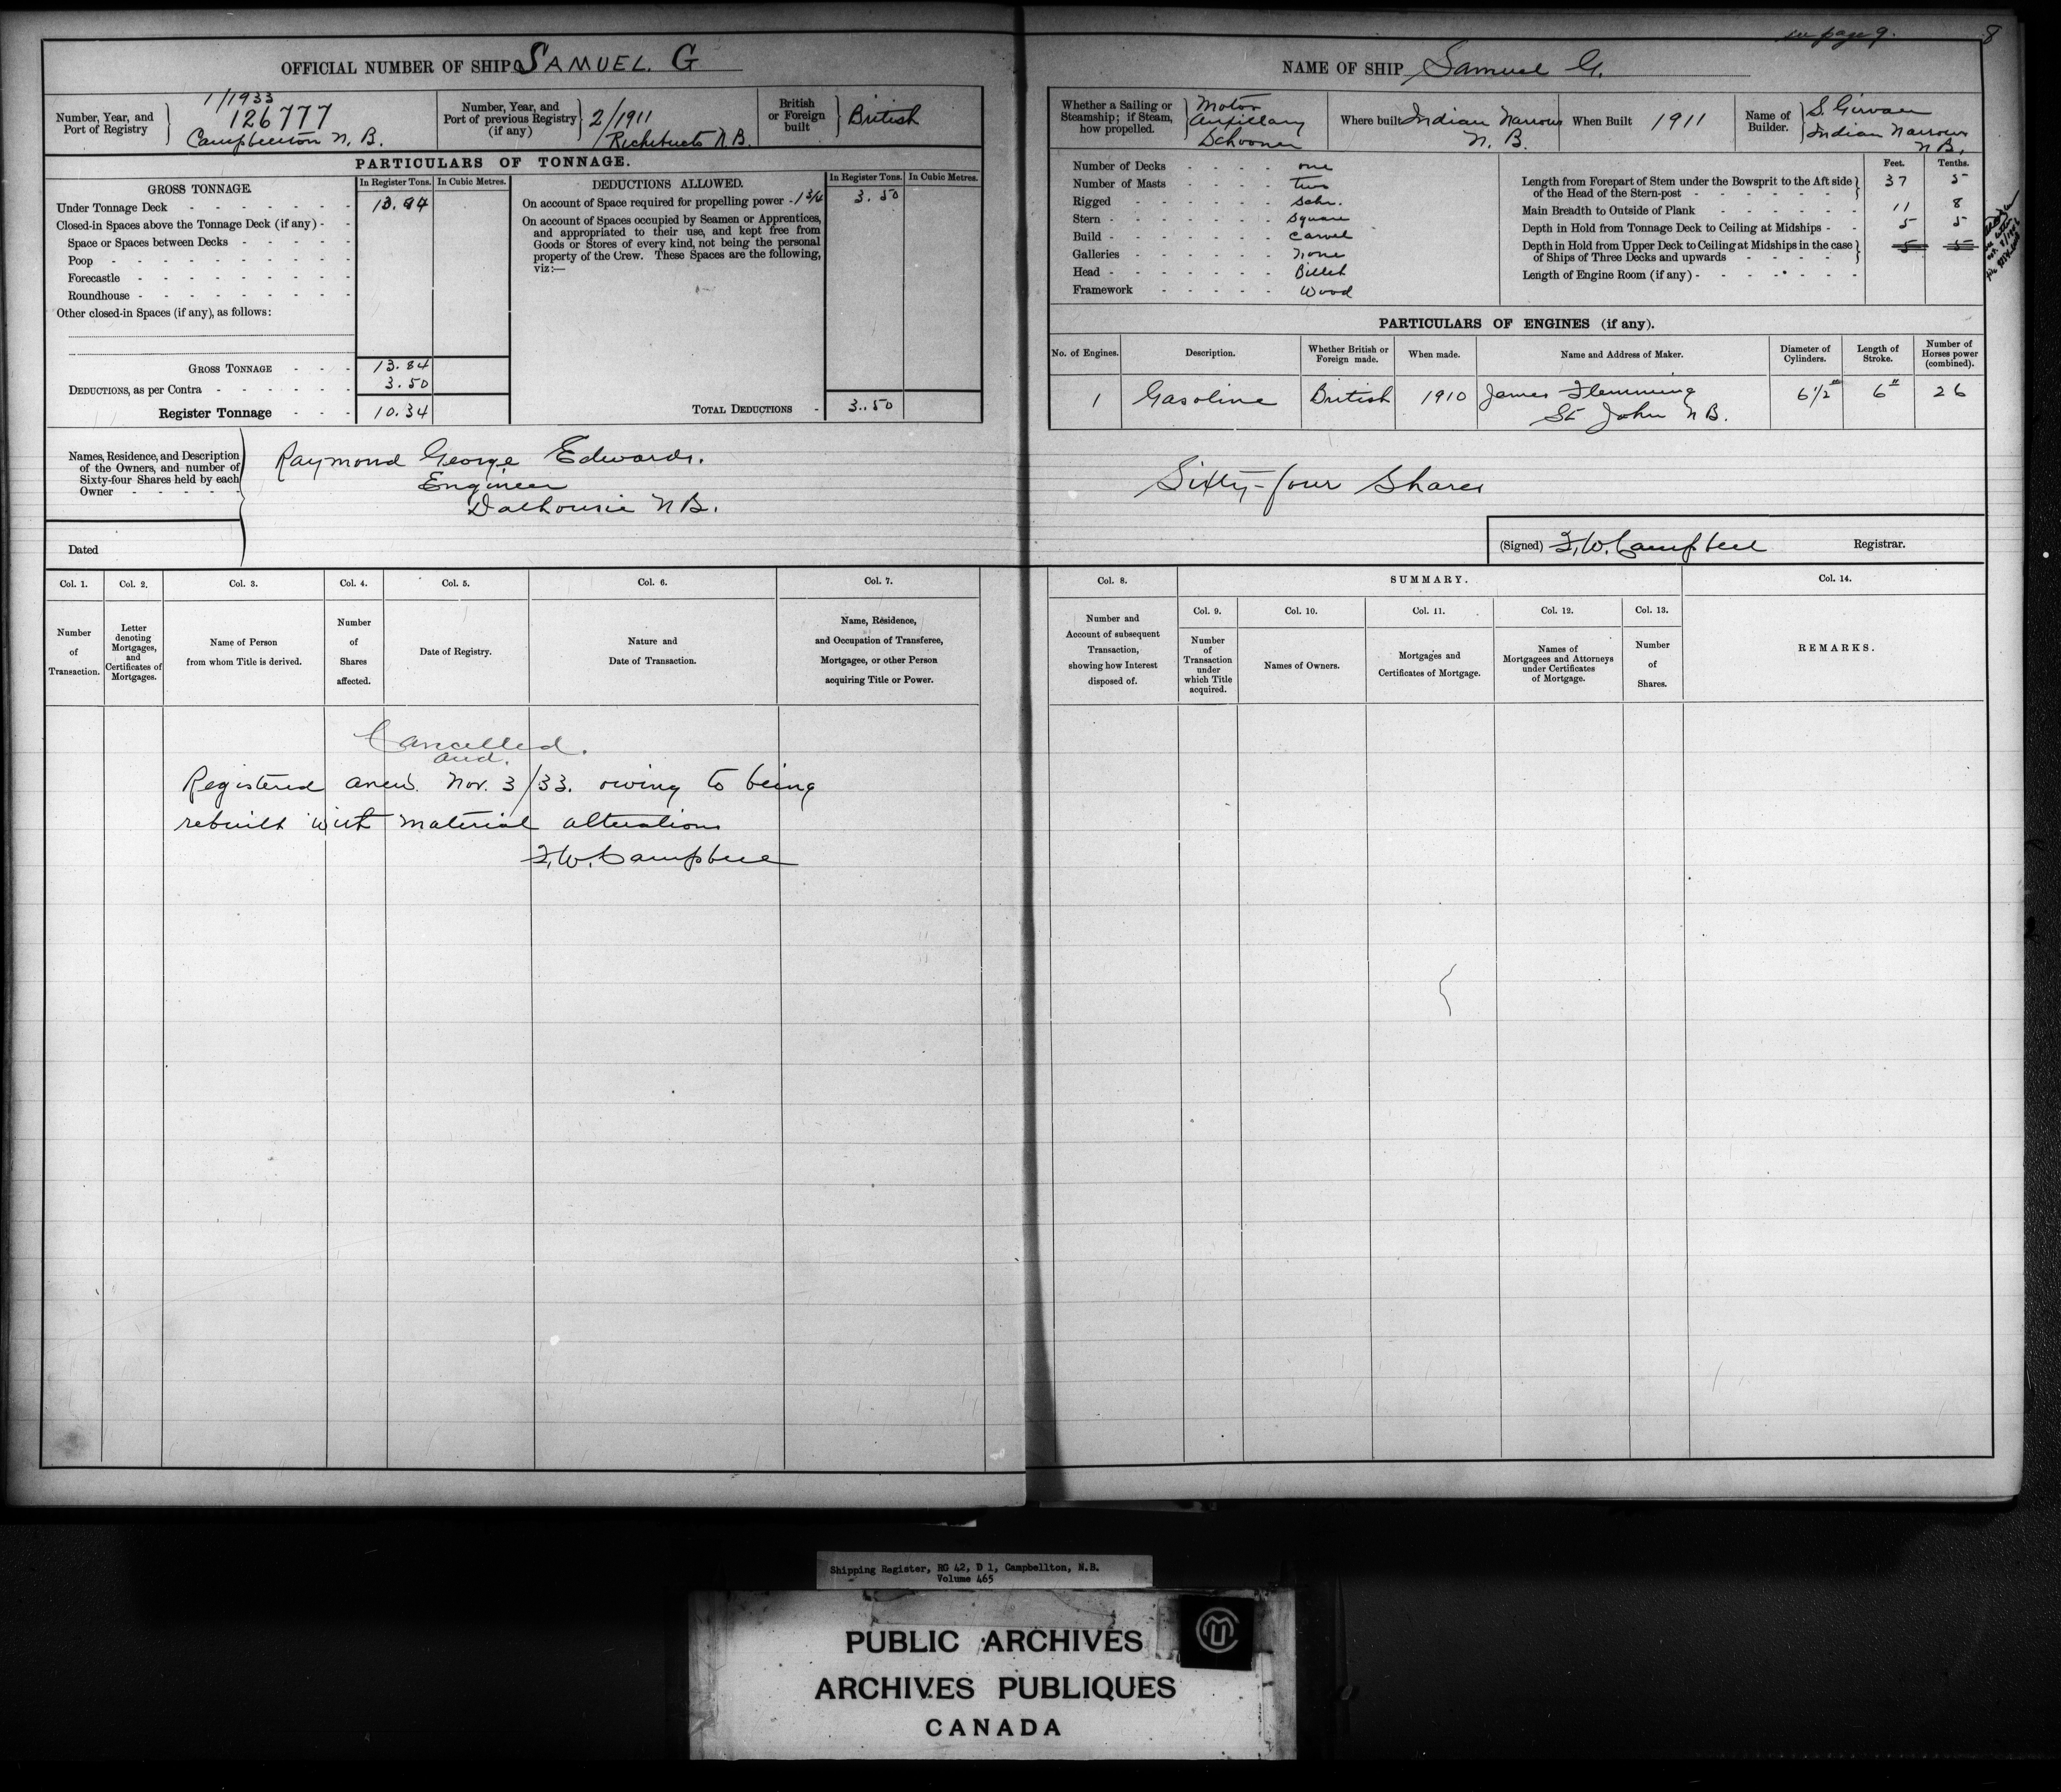 see page 9.
8
OFFICIAL NUMBER OF SHIP SAMUEL. G
Number, Year, and Port of Registry
1/1933
126777
Campbellton N. B.
Number, Year, and Port of previous Registry (if any)
2/1911
Richibucto N.B.
British or Foreign built
British
PARTICULARS OF TONNAGE.
GROSS TONNAGE.
In Register Tons. In Cubic Metres.
Under Tonnage Deck 13.84
Closed-in Spaces above the Tonnage Deck (if any)
Space or Spaces between Decks
Poop
Forecastle
Roundhouse
Other closed-in Spaces (if any), as follows:
GROSS TONNAGE 13.84
DEDUCTIONS, as per Contra 3.50
Register Tonnage 10.34
DEDUCTIONS ALLOWED.
In Register Tons. In Cubic Metres.
On account of Space required for propelling power - 13/4 3.50
On account of Spaces occupied by Seamen or Apprentices,
and appropriated to their use, and kept free from
Goods or Stores of every kind, not being the personal
property of the Crew. These Spaces are the following,
viz:—
TOTAL DEDUCTIONS - 3.50
Names, Residence, and Description
of the Owners, and number of
Sixty-four Shares held by each
Owner
Raymond George Edwards.
Engineer
Dalhousie N B.
Dated
NAME OF SHIP Samuel G.
Whether a Sailing or
Steamship; if Steam,
how propelled.
Motor
Auxillary
Schooner
Where built Indian Narrows
N. B.
When Built 1911
Name of Builder.
S. Girvan
Indian Narrows
N B.
Number of Decks one
Number of Masts two
Rigged Schr.
Stern Square
Build Carvel
Galleries None
Head Billet
Framework Wood
Feet. Tenths.
Length from Forepart of Stem under the Bowsprit to the Aft side
of the Head of the Stern-post 37 5
Main Breadth to Outside of Plank 11 8
Depth in Hold from Tonnage Deck to Ceiling at Midships 5 5
Depth in Hold from Upper Deck to Ceiling at Midships in the case
of Ships of Three Decks and upwards 5 5
Length of Engine Room (if any)
PARTICULARS OF ENGINES (if any).
No. of Engines. Description. Whether British or Foreign made. When made. Name and Address of Maker. Diameter of Cylinders. Length of Stroke. Number of Horses power (combined).
1 Gasoline British 1910 James Flemming 6 1/2" 6" 26
St John N B.
Sixty-four Shares
(Signed) F. W. Campbell Registrar.
Col. 1. Col. 2. Col. 3. Col. 4. Col. 5. Col. 6. Col. 7.
Number of Transaction.
Letter denoting Mortgages, and Certificates of Mortgages.
Name of Person from whom Title is derived.
Number of Shares affected.
Date of Registry.
Nature and Date of Transaction.
Name, Residence, and Occupation of Transferee, Mortgagee, or other Person acquiring Title or Power.
Col. 8. SUMMARY. Col. 14.
Number and Account of subsequent Transaction, showing how Interest disposed of.
Col. 9. Col. 10. Col. 11. Col. 12. Col. 13.
Number of Transaction under which Title acquired.
Names of Owners.
Mortgages and Certificates of Mortgage.
Names of Mortgagees and Attorneys under Certificates of Mortgage.
Number of Shares.
REMARKS.
Cancelled.
and.
Registered anew. Nov. 3/33. owing to being
rebuilt with material alterations
F. W. Campbell
Shipping Register, RG 42, D 1, Campbellton, N.B.
Volume 465
PUBLIC ARCHIVES
ARCHIVES PUBLIQUES
CANADA